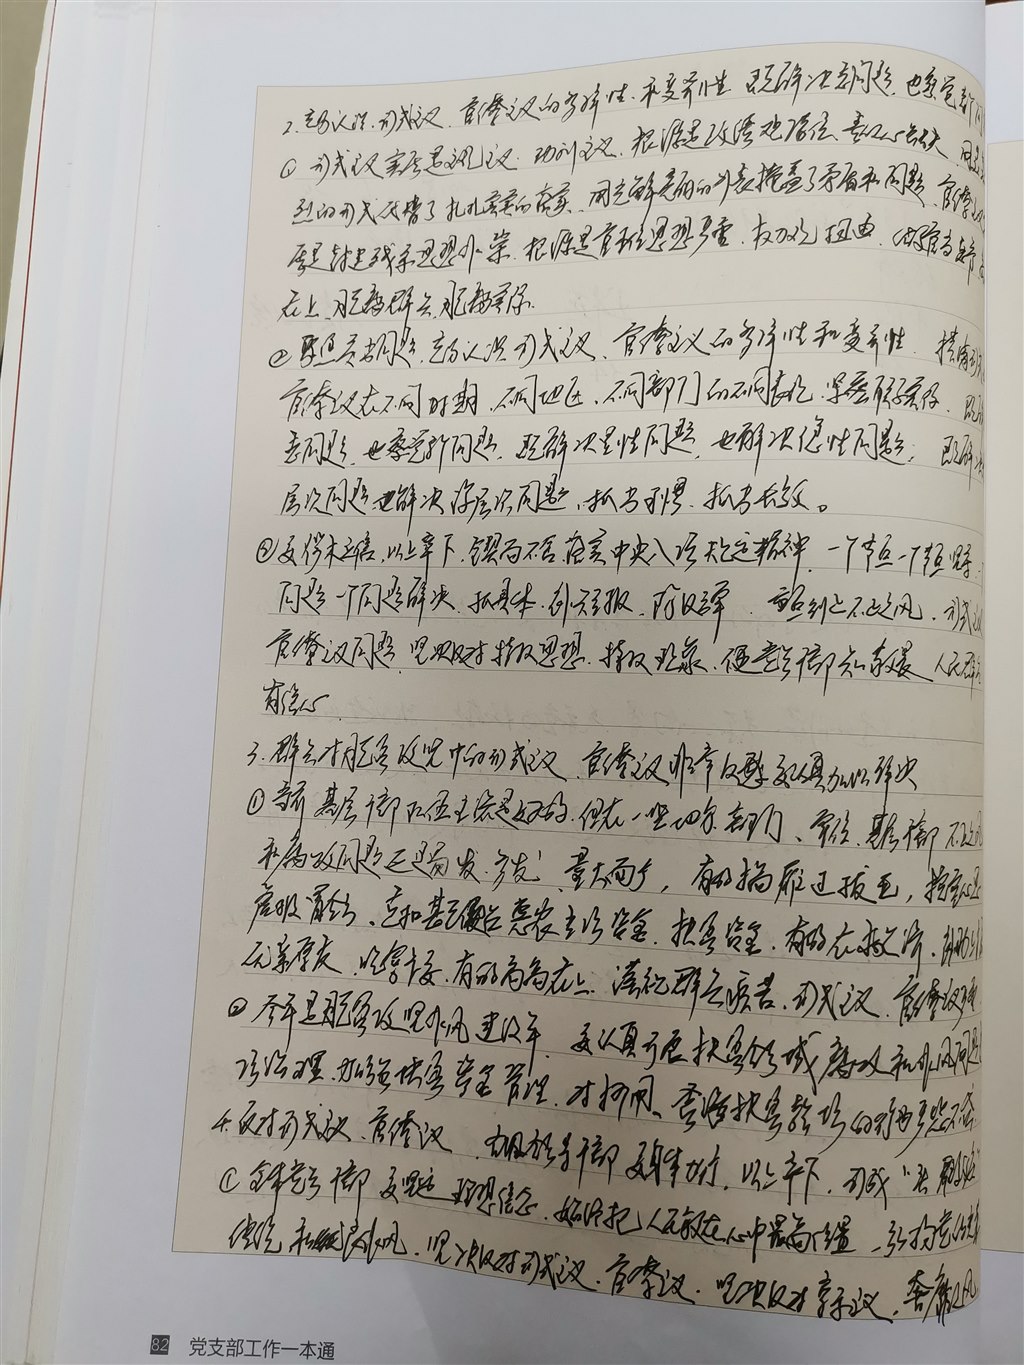 2.充分认识形式主义、官僚主义的多样性和变异性 既解决老问题,也察觉新问
① 形式主义实质是主观主义、功利主义,根源是政绩观错位、责任心缺失,用
烈的形式代替了扎扎实实的落实,用光鲜亮丽的外表掩盖了矛盾和问题。官僚主
实质是封建残余思想作祟,根源是官本位思想严重、权力观扭曲,做官当老爷 高
在上,脱离群众,脱离实际.
② 聚焦突出问题,充分认识形式主义、官僚主义的多样性和变异性,摸清形
官僚主义在不同时期、不同地区、不同部门的不同表现,紧密联系实际,既
老问题,也察觉新问题,既解决显性问题,也解决隐性问题;既解决
层次问题 也解决深层次问题,抓出习惯,抓出长效。
③ 要以上率下,锲而不舍 落实中央八项规定精神,一个节点一个节点坚守
问题一个问题解决,抓具体、防反弹. 形式
官僚主义问题,坚决反对特权思想、特权现象,干部 人民群众
有信心
3.群众对脱贫攻坚中的形式主义、官僚主义非常反感 要认真加以解决
① 当前基层干部队伍主流是好的,但在一些地方、部门、单位,基层干部 不正之风
和腐败问题还易发、多发、量大面广,有的搞雁过拔毛,
虚报冒领、克扣甚至侵占惠农专项资金、扶贫资金,有的在救济、
优亲厚友、吃拿卡要,有的高高在上、漠视群众疾苦,形式主义、官僚主义严重
② 今年是脱贫攻坚作风建设年,要认真开展扶贫领域腐败和作风问题
项治理,加强扶贫资金管理,对挪用、贪污扶贫款项的行为严惩不贷
4.反对形式主义、官僚主义 领导干部 要身体力行,以上率下,形成“头雁效应”
① 全体党员干部 要坚定理想信念,始终把人民放在心中最高位置,弘扬党的光荣
传统和优良作风,坚决反对形式主义、官僚主义,坚决反对享乐主义、奢靡之风
82 党支部工作一本通